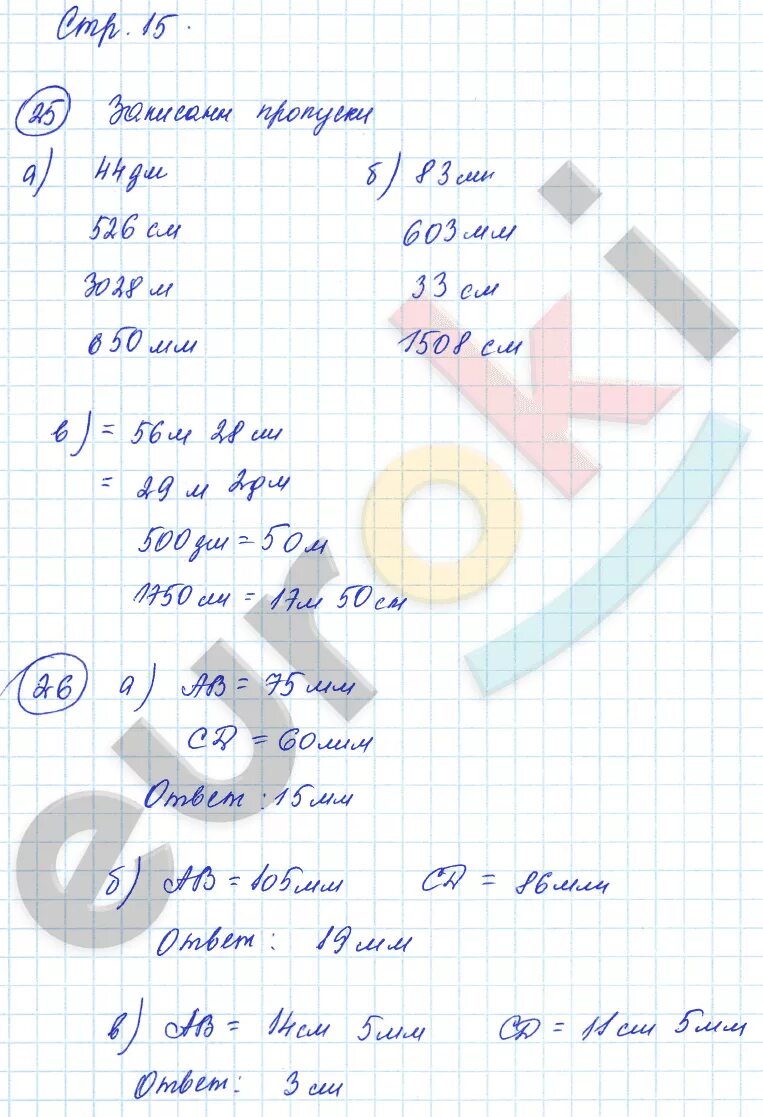 Стр. 15.
25 Записани пропуски
а) 44дм б) 83мм
526 см 603мм
3028 м 33 см
650 мм 1508 см
в) = 56м 28 см
= 29 м 2дм
500дм = 50м
1750см = 17м 50см
26 а) AB = 75мм
CD = 60мм
Ответ: 15мм
б) AB = 105мм CD = 86мм
Ответ: 19мм
в) AB = 14см 5мм CD = 11см 5мм
Ответ: 3 см
euroki